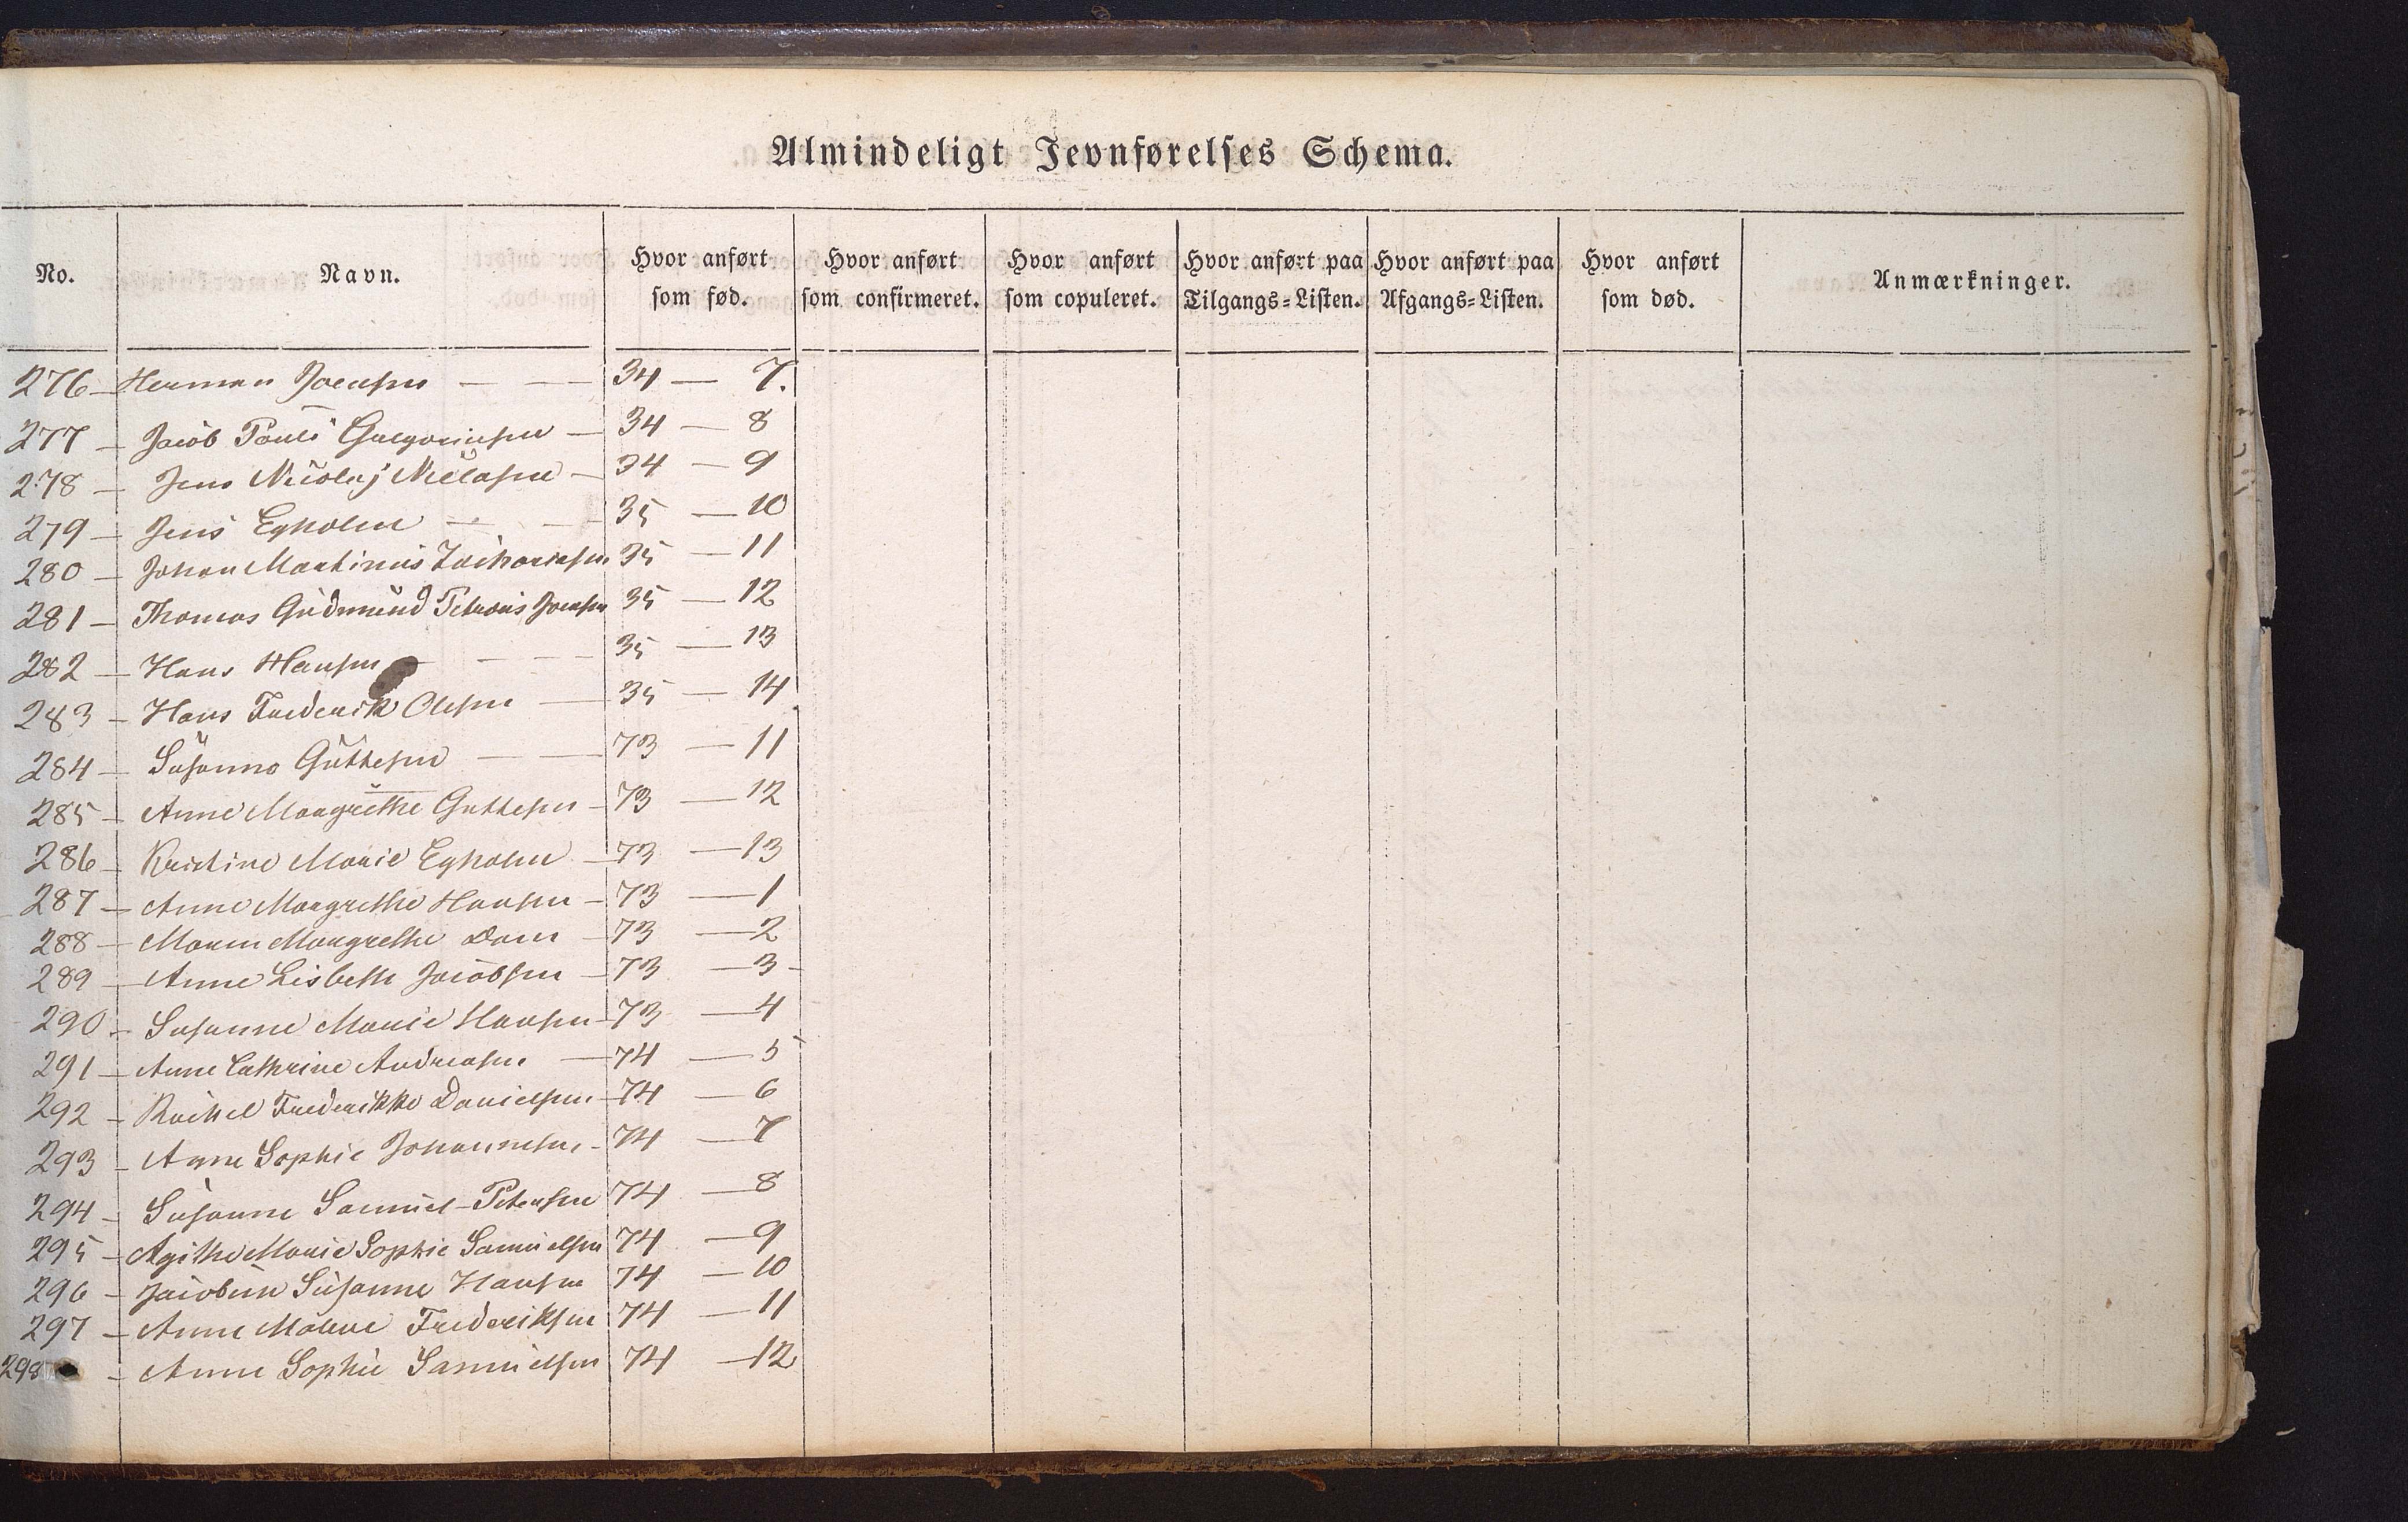 Almindeligt Jevnførelses Schema.
No. Navn. Hvor anført som fød. Hvor anført som confirmeret. Hvor anført som copuleret. Hvor anført paa Tilgangs-Listen. Hvor anført paa Afgangs-Listen. Hvor anført som død. Anmærkninger.
276 — Herman Joensen — — 34 — 7.
277 — Jacob Pouli Gregoriussen — 34 — 8
278 — Jens Nicolaj Nielasen — 34 — 9
279 — Jens Egholm — — 35 — 10
280 — Johan Martinus Zachariasen 35 — 11
281 — Thomas Gudmund Petræus Joensen 35 — 12
282 — Hans Hansen — — — 35 — 13
283 — Hans Frederik Olesen — 35 — 14
284 — Susanna Guttesen — — 73 — 11
285 — Anne Margrethe Guttesen — 73 — 12
286 — Kristine Marie Egholm — 73 — 13
287 — Anne Margrethe Hansen — 73 — 1
288 — Maren Margrethe Dam — 73 — 2
289 — Anne Lisbeth Jacobsen — 73 — 3 -
290 — Susanne Marie Hansen — 73 — 4
291 — Anne Cathrine Andreasen — 74 — 5
292 — Rachel Frederikke Danielsen — 74 — 6
293 — Anne Sophie Johannesen — 74 — 7
294 — Susanne Samuel-Petersen 74 — 8
295 — Agithe Marie Sophie Samuelsen 74 — 9
296 — Jacobine Susanne Hansen 74 — 10
297 — Anne Malene Frederiksen 74 — 11
298 — Anne Sophie Samuelsen 74 — 12